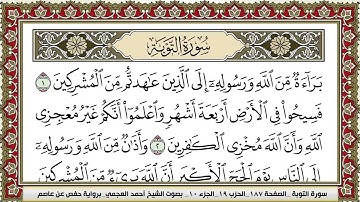 سُورَةُ التَّوْبَةِ
بَرَاءَةٌ مِّنَ ٱللَّهِ وَرَسُولِهِۦٓ إِلَى ٱلَّذِينَ عَٰهَدتُّم مِّنَ ٱلْمُشْرِكِينَ ١
فَسِيحُوا۟ فِى ٱلْأَرْضِ أَرْبَعَةَ أَشْهُرٍ وَٱعْلَمُوٓا۟ أَنَّكُمْ غَيْرُ مُعْجِزِى
ٱللَّهِ وَأَنَّ ٱللَّهَ مُخْزِى ٱلْكَٰفِرِينَ ٢ وَأَذَٰنٌ مِّنَ ٱللَّهِ وَرَسُولِهِۦٓ
إِلَى ٱلنَّاسِ يَوْمَ ٱلْحَجِّ ٱلْأَكْبَرِ أَنَّ ٱللَّهَ بَرِىٓءٌ مِّنَ ٱلْمُشْرِكِينَ
سورة التوبة _ الصفحة ١٨٧ _ الحزب ١٩ _ الجزء ١٠ _ بصوت الشيخ أحمد العجمي _ برواية حفص عن عاصم